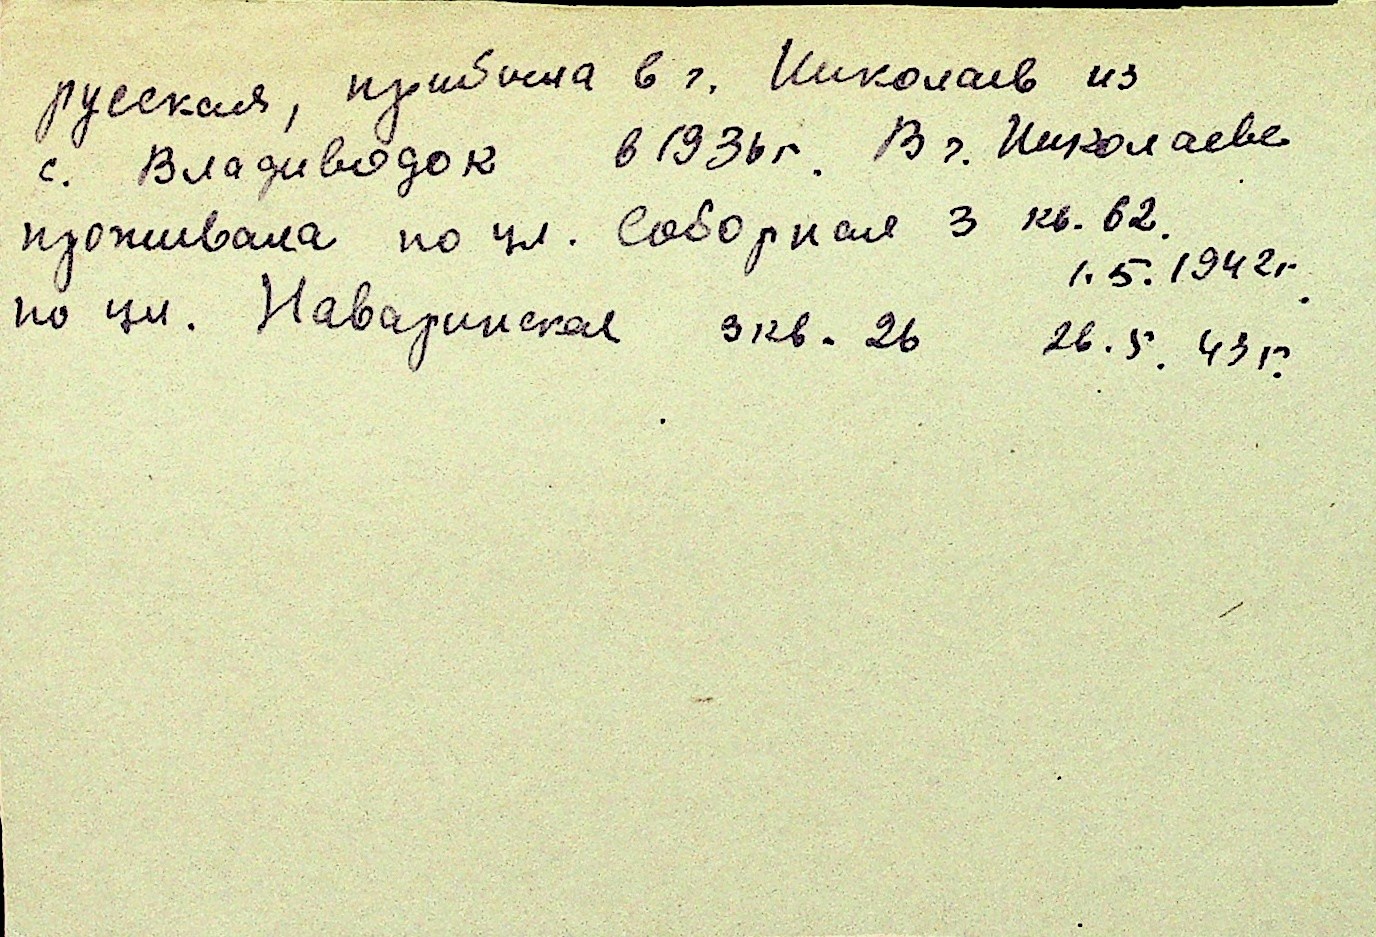 русская, прибыла в г. Николаев из
с. Владиводок в 1936г. В г. Николаеве
проживала по ул. Соборная 3 кв. 62.
1.5.1942г.
по ул. Наваринская 3 кв. 26 26.5.43г.